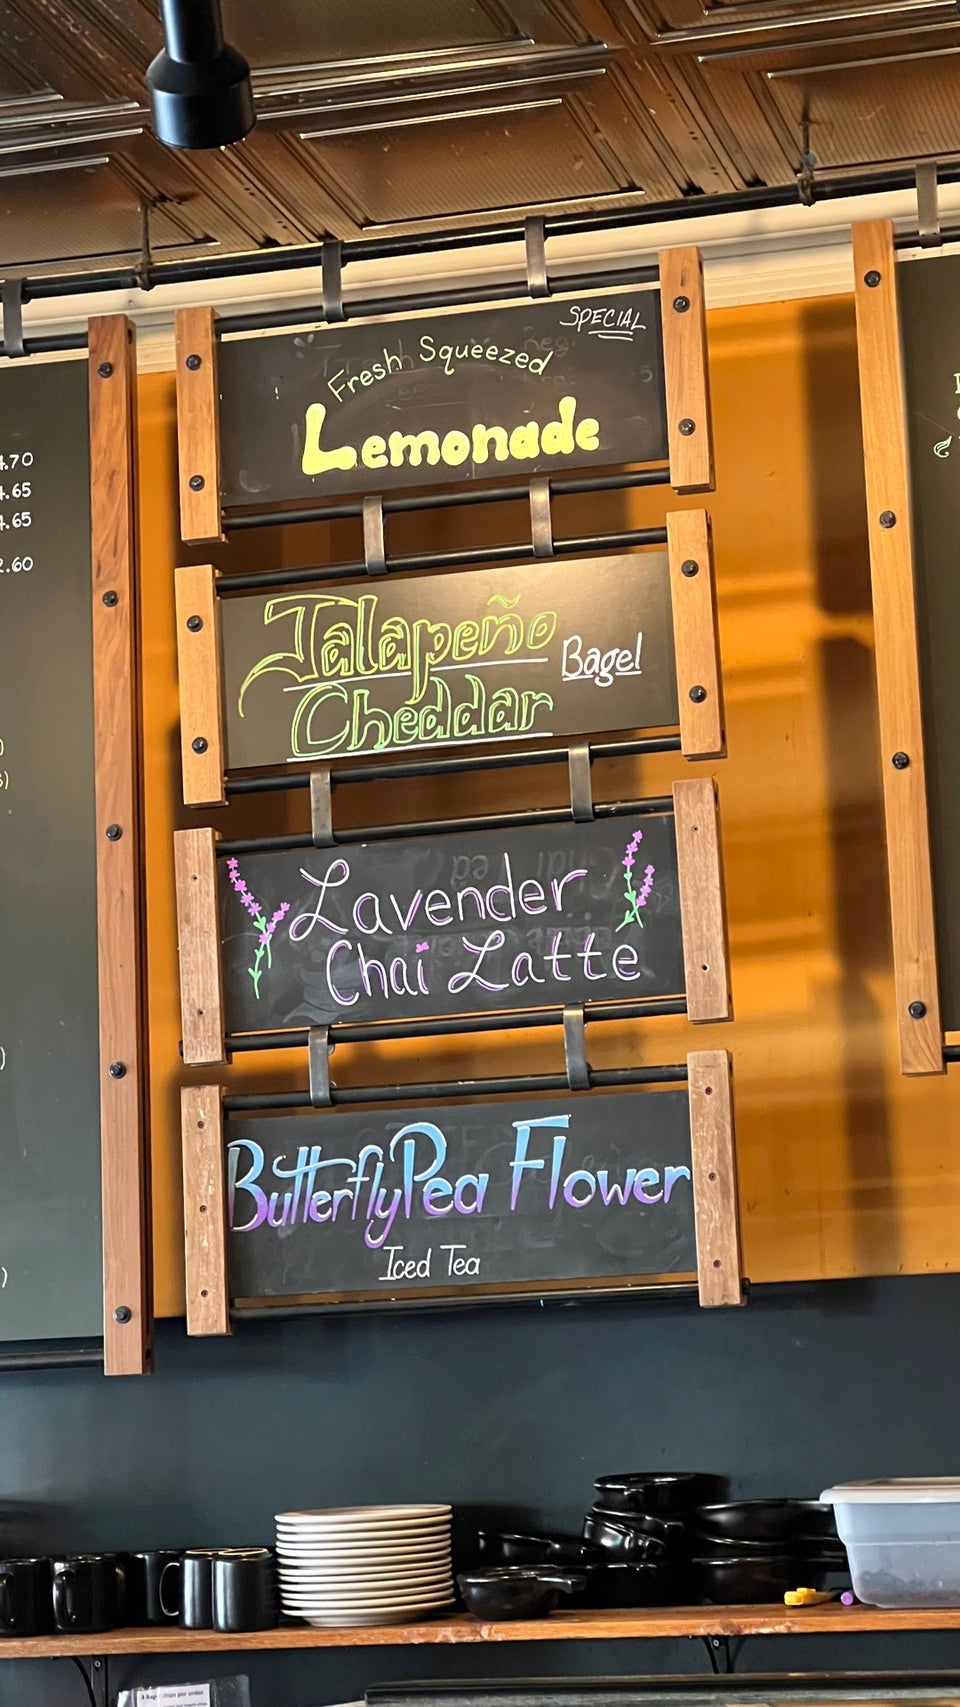 SPECIAL
Fresh Squeezed
Lemonade
Jalapeño
Bagel
Cheddar
Lavender
Chai Latte
Butterfly Pea Flower
Iced Tea
4.70
4.65
4.65
2.60